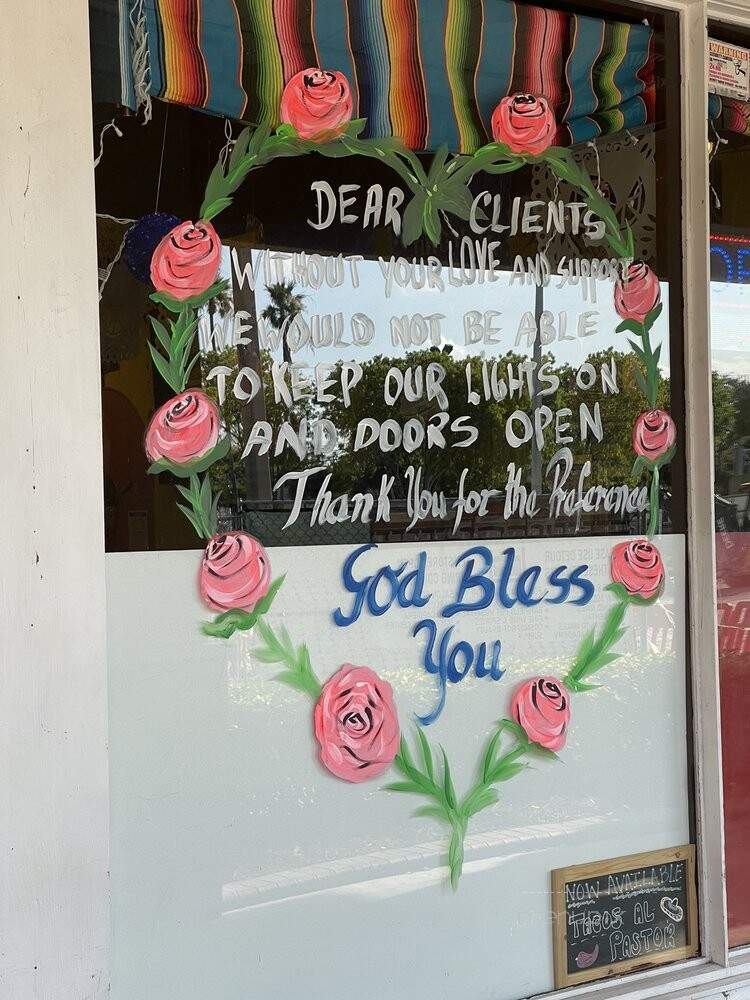 WARNING
DEAR CLIENTS
WITHOUT YOUR LOVE AND SUPPORT
WE WOULD NOT BE ABLE
TO KEEP OUR LIGHTS ON
AND DOORS OPEN
Thank You for the Preference
God Bless
You
NOW AVAILABLE
TACOS AL
PASTOR